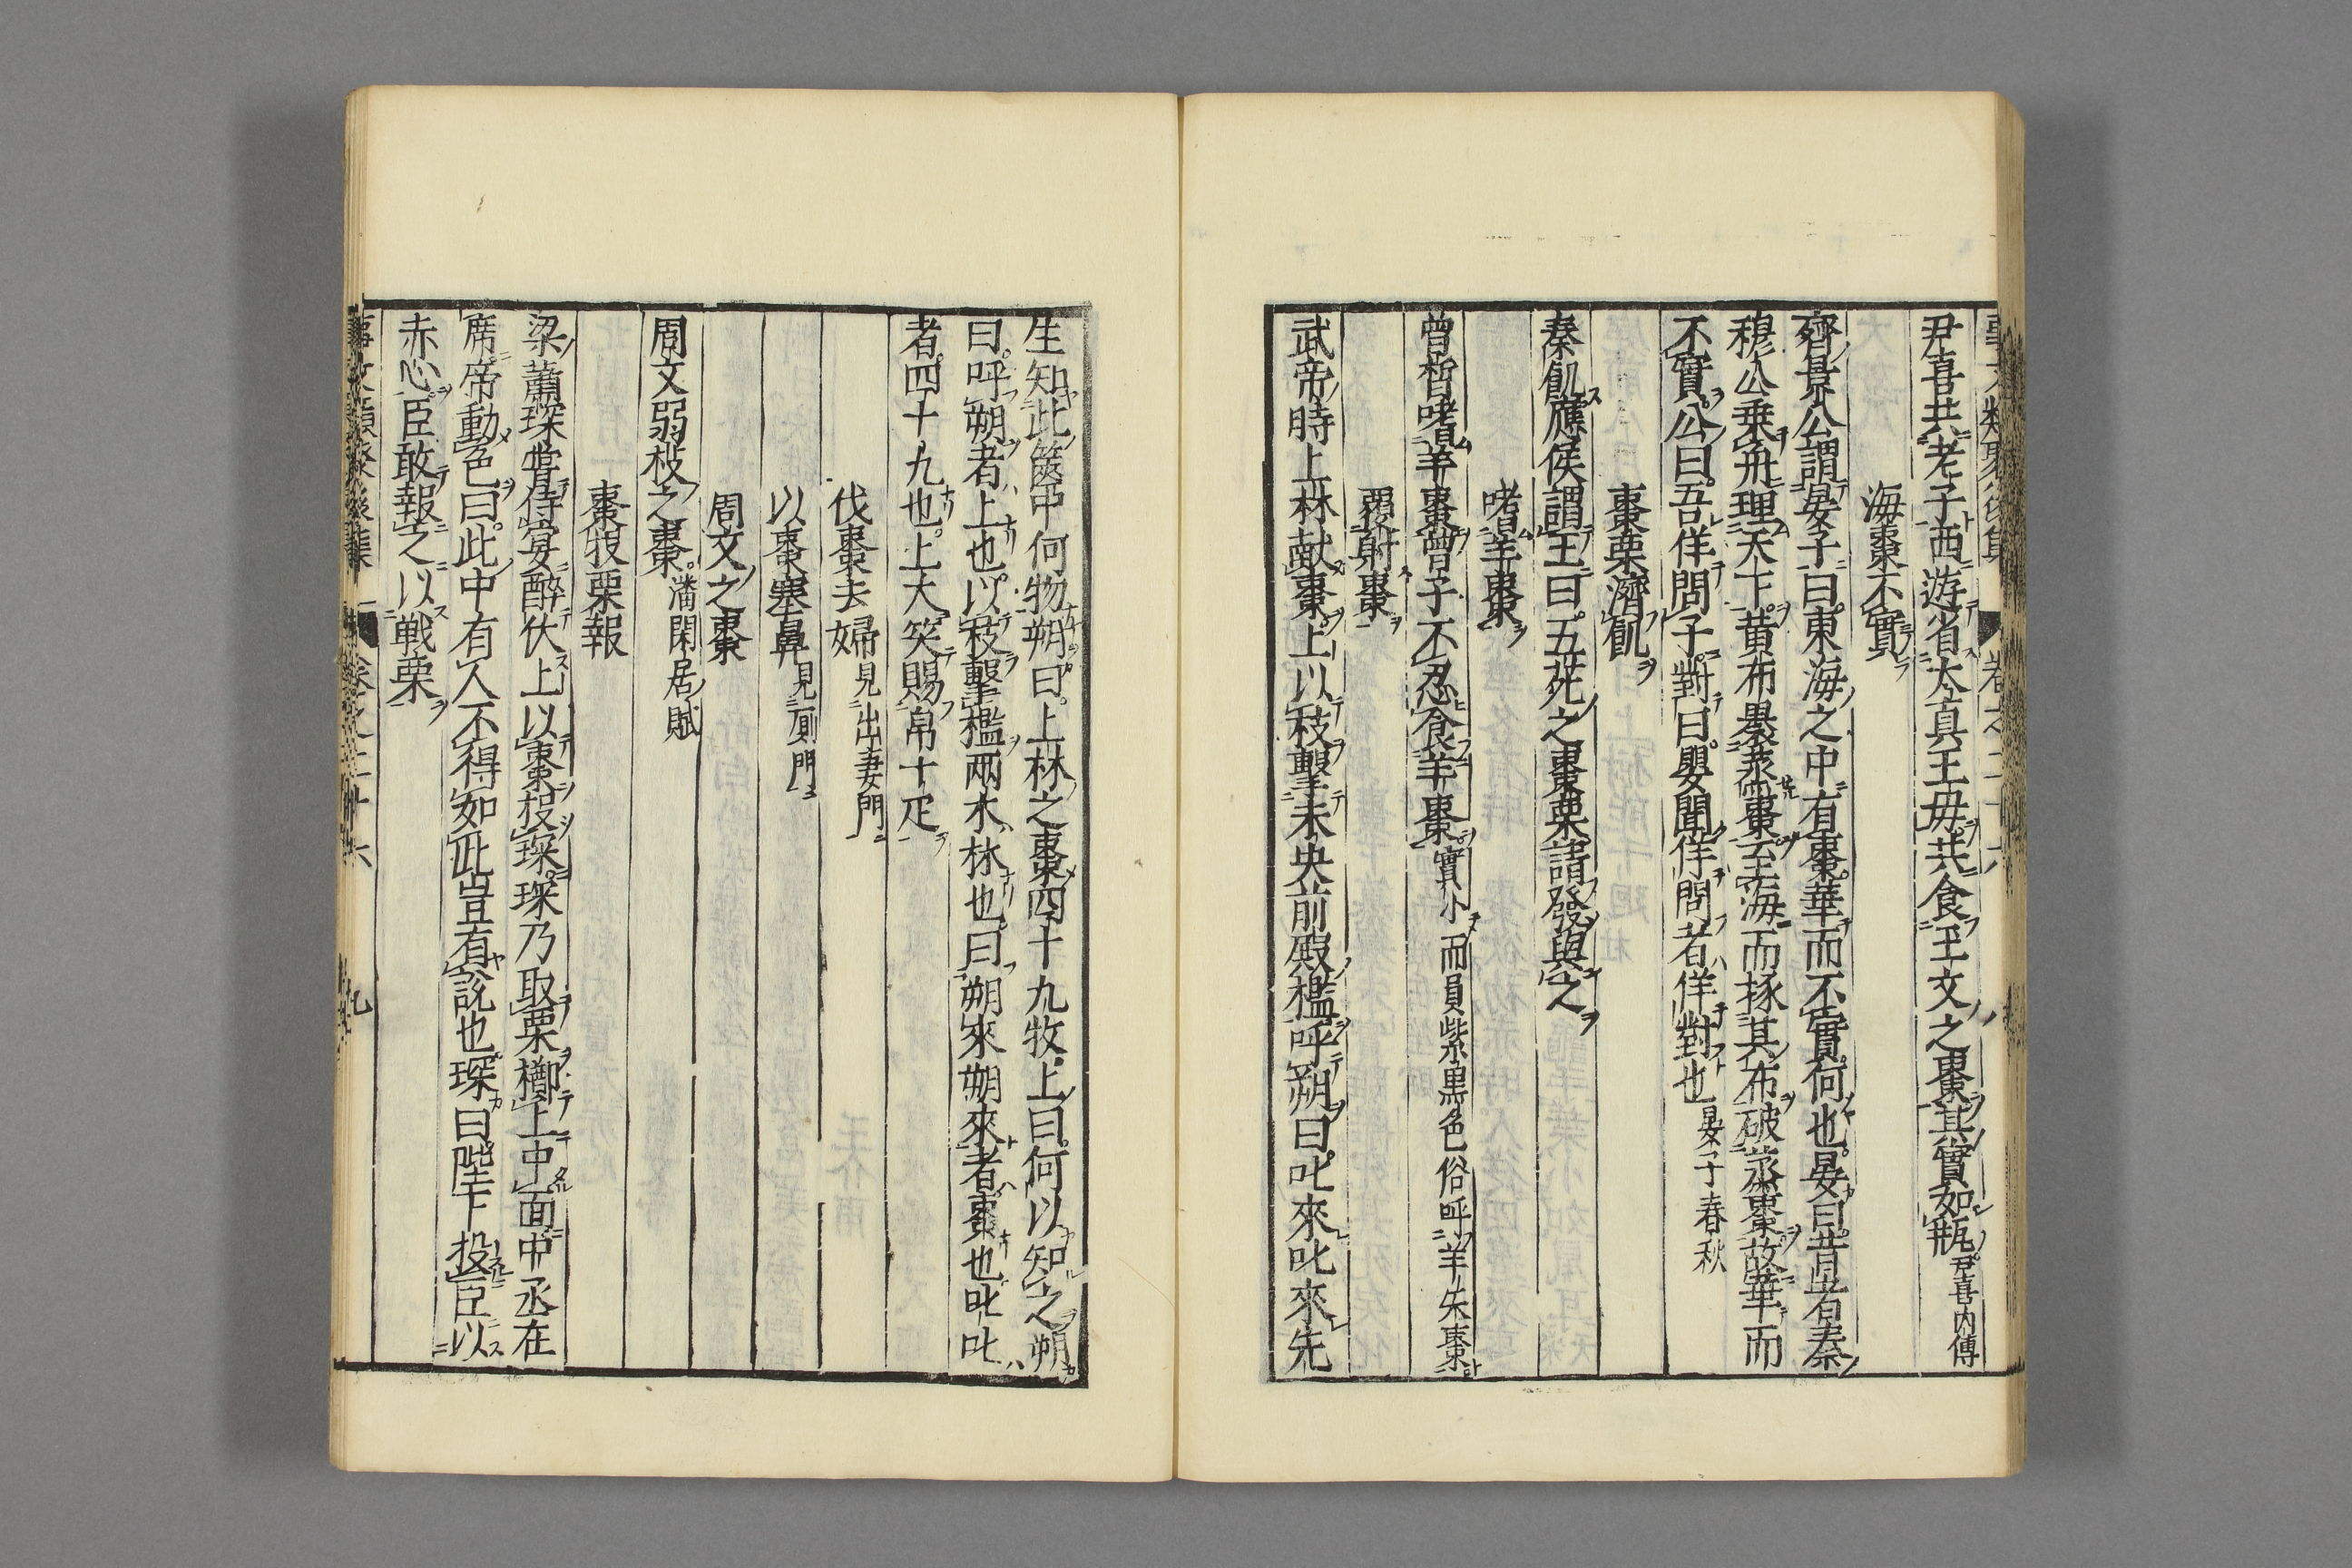 尹喜共老子西遊省太真王母共食玉文之棗其實如瓶尹喜内傳
海棗不實
齊景公謂晏子曰東海之中有棗華而不實何也晏曰昔者秦
穆公乗舟理天下黄布褁蒸棗至海而捼其布破蒸棗故華而
不實公曰吾佯問子對曰嬰聞佯問者佯對也晏子春秋
棗栗濟飢
秦飢應侯謂王曰五苑之棗栗請發與之
嗜羊棗
曾晳嗜羊棗曾子不忍食羊棗實小而員紫黒色俗呼羊矢棗
覆射棗
武帝時上林献棗上以枝擊未央前殿檻呼朔曰叱來叱來先
生知此篋中何物朔曰上林之棗四十九牧上曰何以知之朔
曰呼朔者上也以枝擊檻兩木林也曰朔來朔來者棗也叱叱
者四十九也上大笑賜帛十疋
伐棗去婦見出妻門
以棗塞鼻見厠門
周文之棗
周文弱枝之棗潘閑居賦
棗投栗報
梁蕭琛甞侍宴醉伏上以棗投琛琛乃取栗擲上中面中丞在
席帝動色曰此中有人不得如此豈有說也琛曰陛下投臣以
赤心臣敢報之以戦栗
事文類聚後集 卷之二十六 九